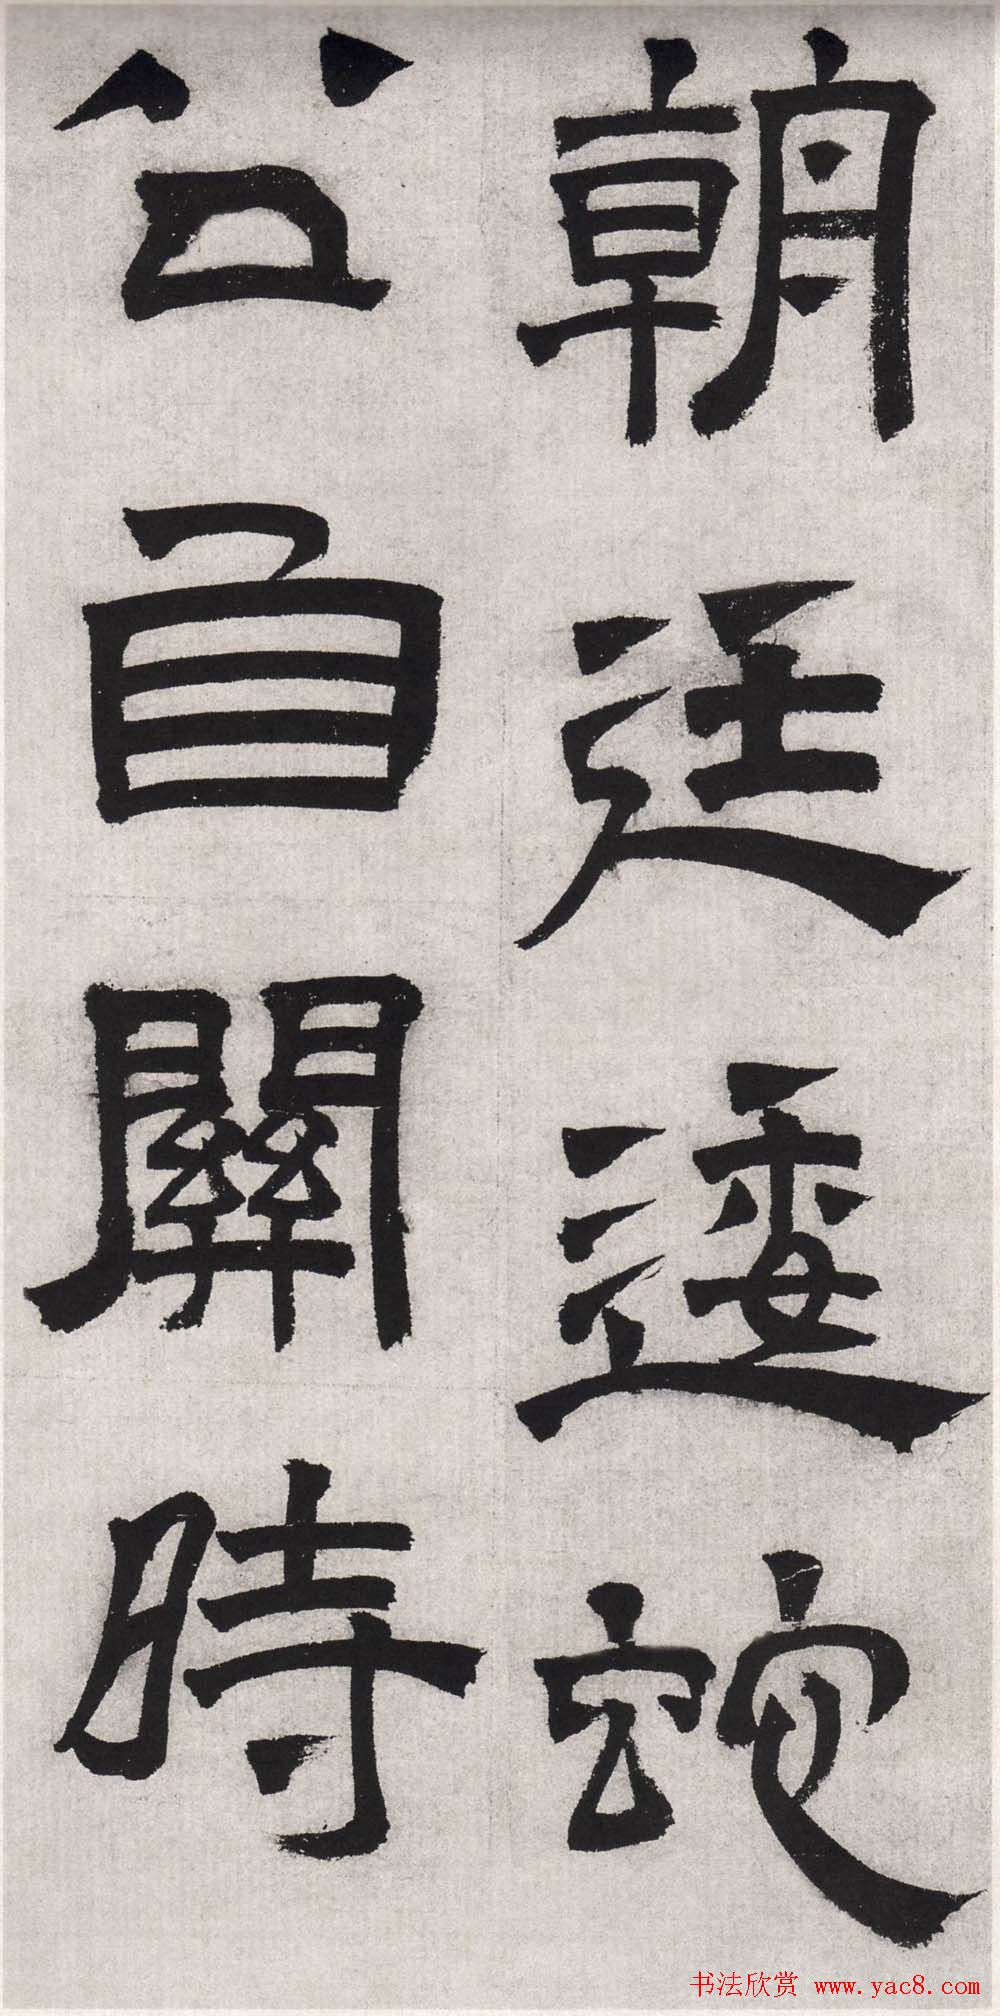 朝廷逶蛇
公自關時
书法欣赏 www.yac8.com